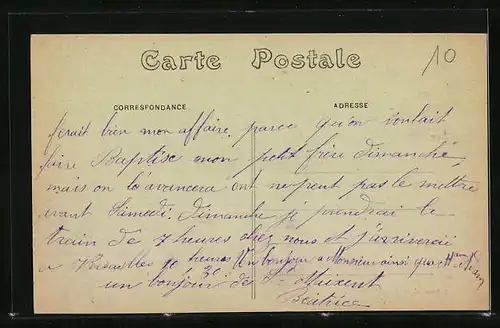 Carte Postale
10
CORRESPONDANCE
ADRESSE
ferait bien mon affaire, parce qu'on voulait
faire Baptise mon petit frère Dimanche,
mais on l'avancera ont ne peut pas le mettre
avant Samedi. Dimanche je prendrai le
train de 7 heures chez nous et j'arriverai
a Versailles 10 heures 30. Un bonjour a Monsieur ainsi qua
un bonjour de St Maixent
Béatrice